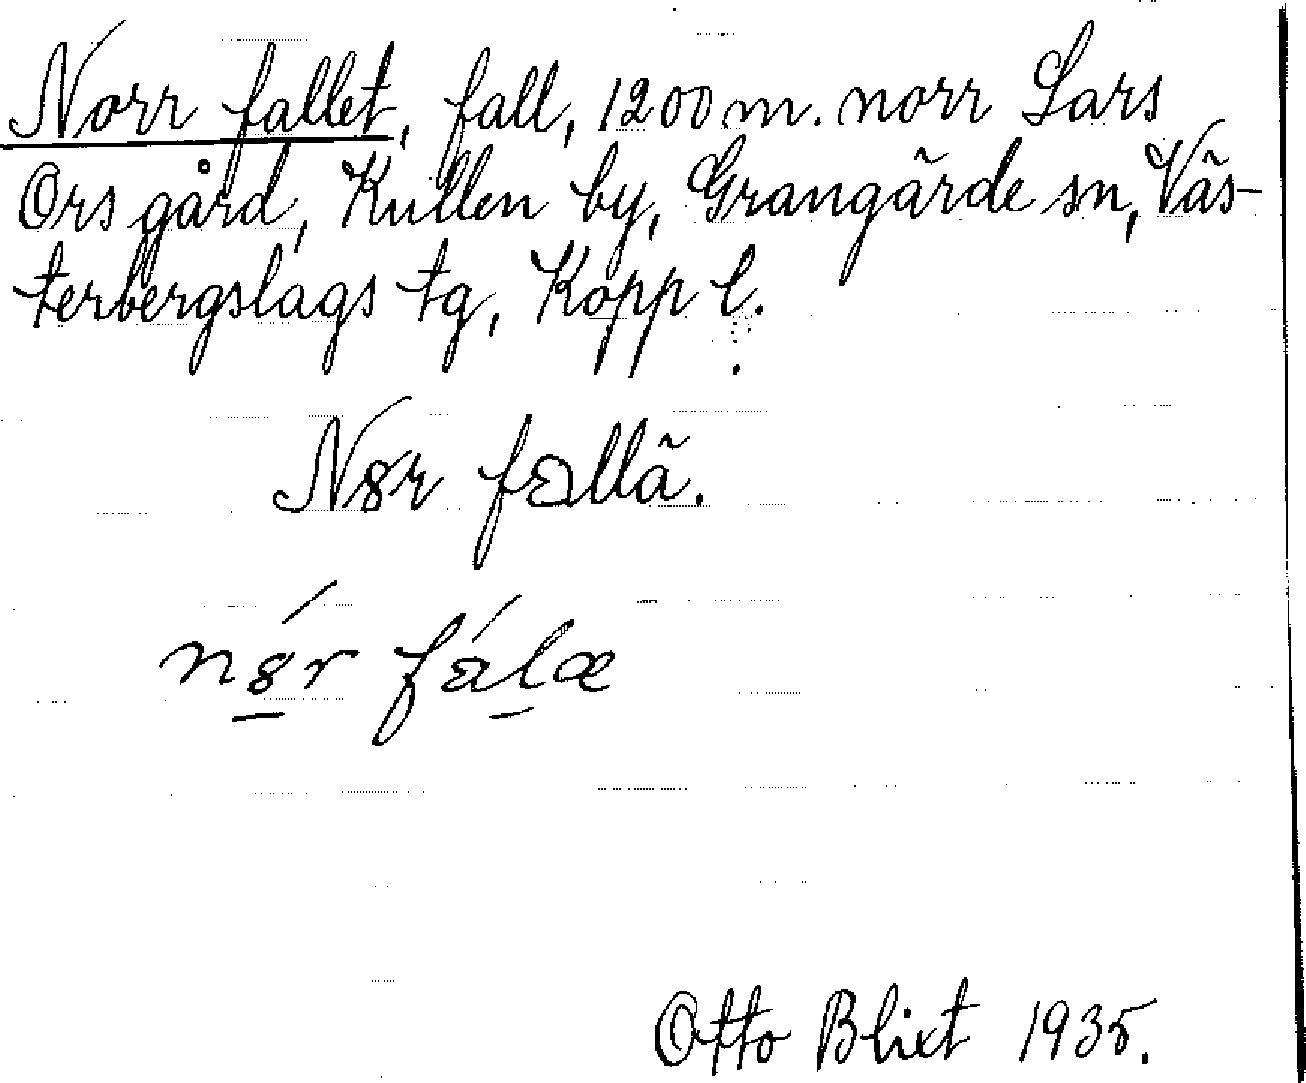 Norr fallet, fall, 1200 m. norr Lars
Ors gård, Kullen by, Grangärde sn, Väs-
terbergslags tg, Kopp l.
N8r fallä.
n8́r fálæ
Otto Blixt 1935.